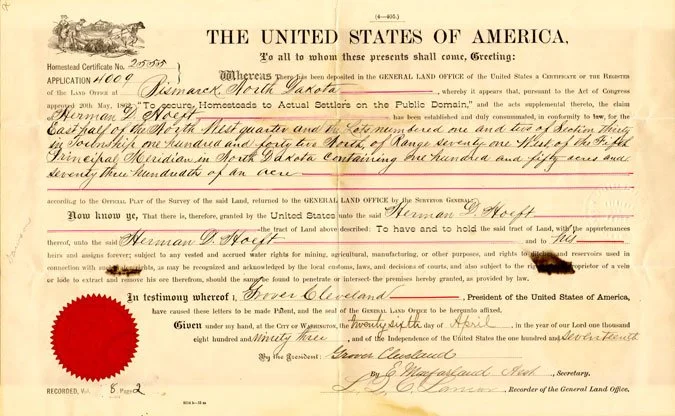 (4—405.)
THE UNITED STATES OF AMERICA,
To all to whom these presents shall come, Greeting:
Homestead Certificate No. 2555
APPLICATION 4009
Whereas There has been deposited in the GENERAL LAND OFFICE of the United States a CERTIFICATE OF THE REGISTER
OF THE LAND OFFICE AT Bismarck, North Dakota, whereby it appears that, pursuant to the Act of Congress
approved 20th May, 1862, "To secure Homesteads to Actual Settlers on the Public Domain," and the acts supplemental thereto, the claim
of Herman D. Hoeft has been established and duly consummated, in conformity to law, for the
East half of the North West quarter and the Lots numbered one and two of Section Thirty
in Township one hundred and forty two North, of Range seventy one West of the Fifth
Principal Meridian in North Dakota containing one hundred and fifty acres and
seventy three hundredths of an acre
according to the OFFICIAL PLAT of the Survey of the said Land, returned to the GENERAL LAND OFFICE by the SURVEYOR GENERAL:
Now know ye, That there is, therefore, granted by the United States unto the said Herman D. Hoeft
the tract of Land above described: To have and to hold the said tract of Land, with the appurtenances
thereof, unto the said Herman D. Hoeft and to his
heirs and assigns forever; subject to any vested and accrued water rights for mining, agricultural, manufacturing, or other purposes, and rights to ditches and reservoirs used in
connection with rights, as may be recognized and acknowledged by the local customs, laws, and decisions of courts, and also subject to the right proprietor of a vein
or lode to extract and remove his ore therefrom, should the same be found to penetrate or intersect the premises hereby granted, as provided by law,
In testimony whereof I, Grover Cleveland, President of the United States of America,
have caused these letters to be made Patent, and the seal of the GENERAL LAND OFFICE to be hereunto affixed,
Given under my hand, at the CITY OF WASHINGTON, the twenty sixth day of April, in the year of our Lord one thousand
eight hundred and Ninety three, and of the Independence of the United States the one hundred and seventeenth
By the President: Grover Cleveland
By E. Macfarland Asst., Secretary.
L. Q. C. Lamar, Recorder of the General Land Office.
RECORDED, Vol. 8, Page 2